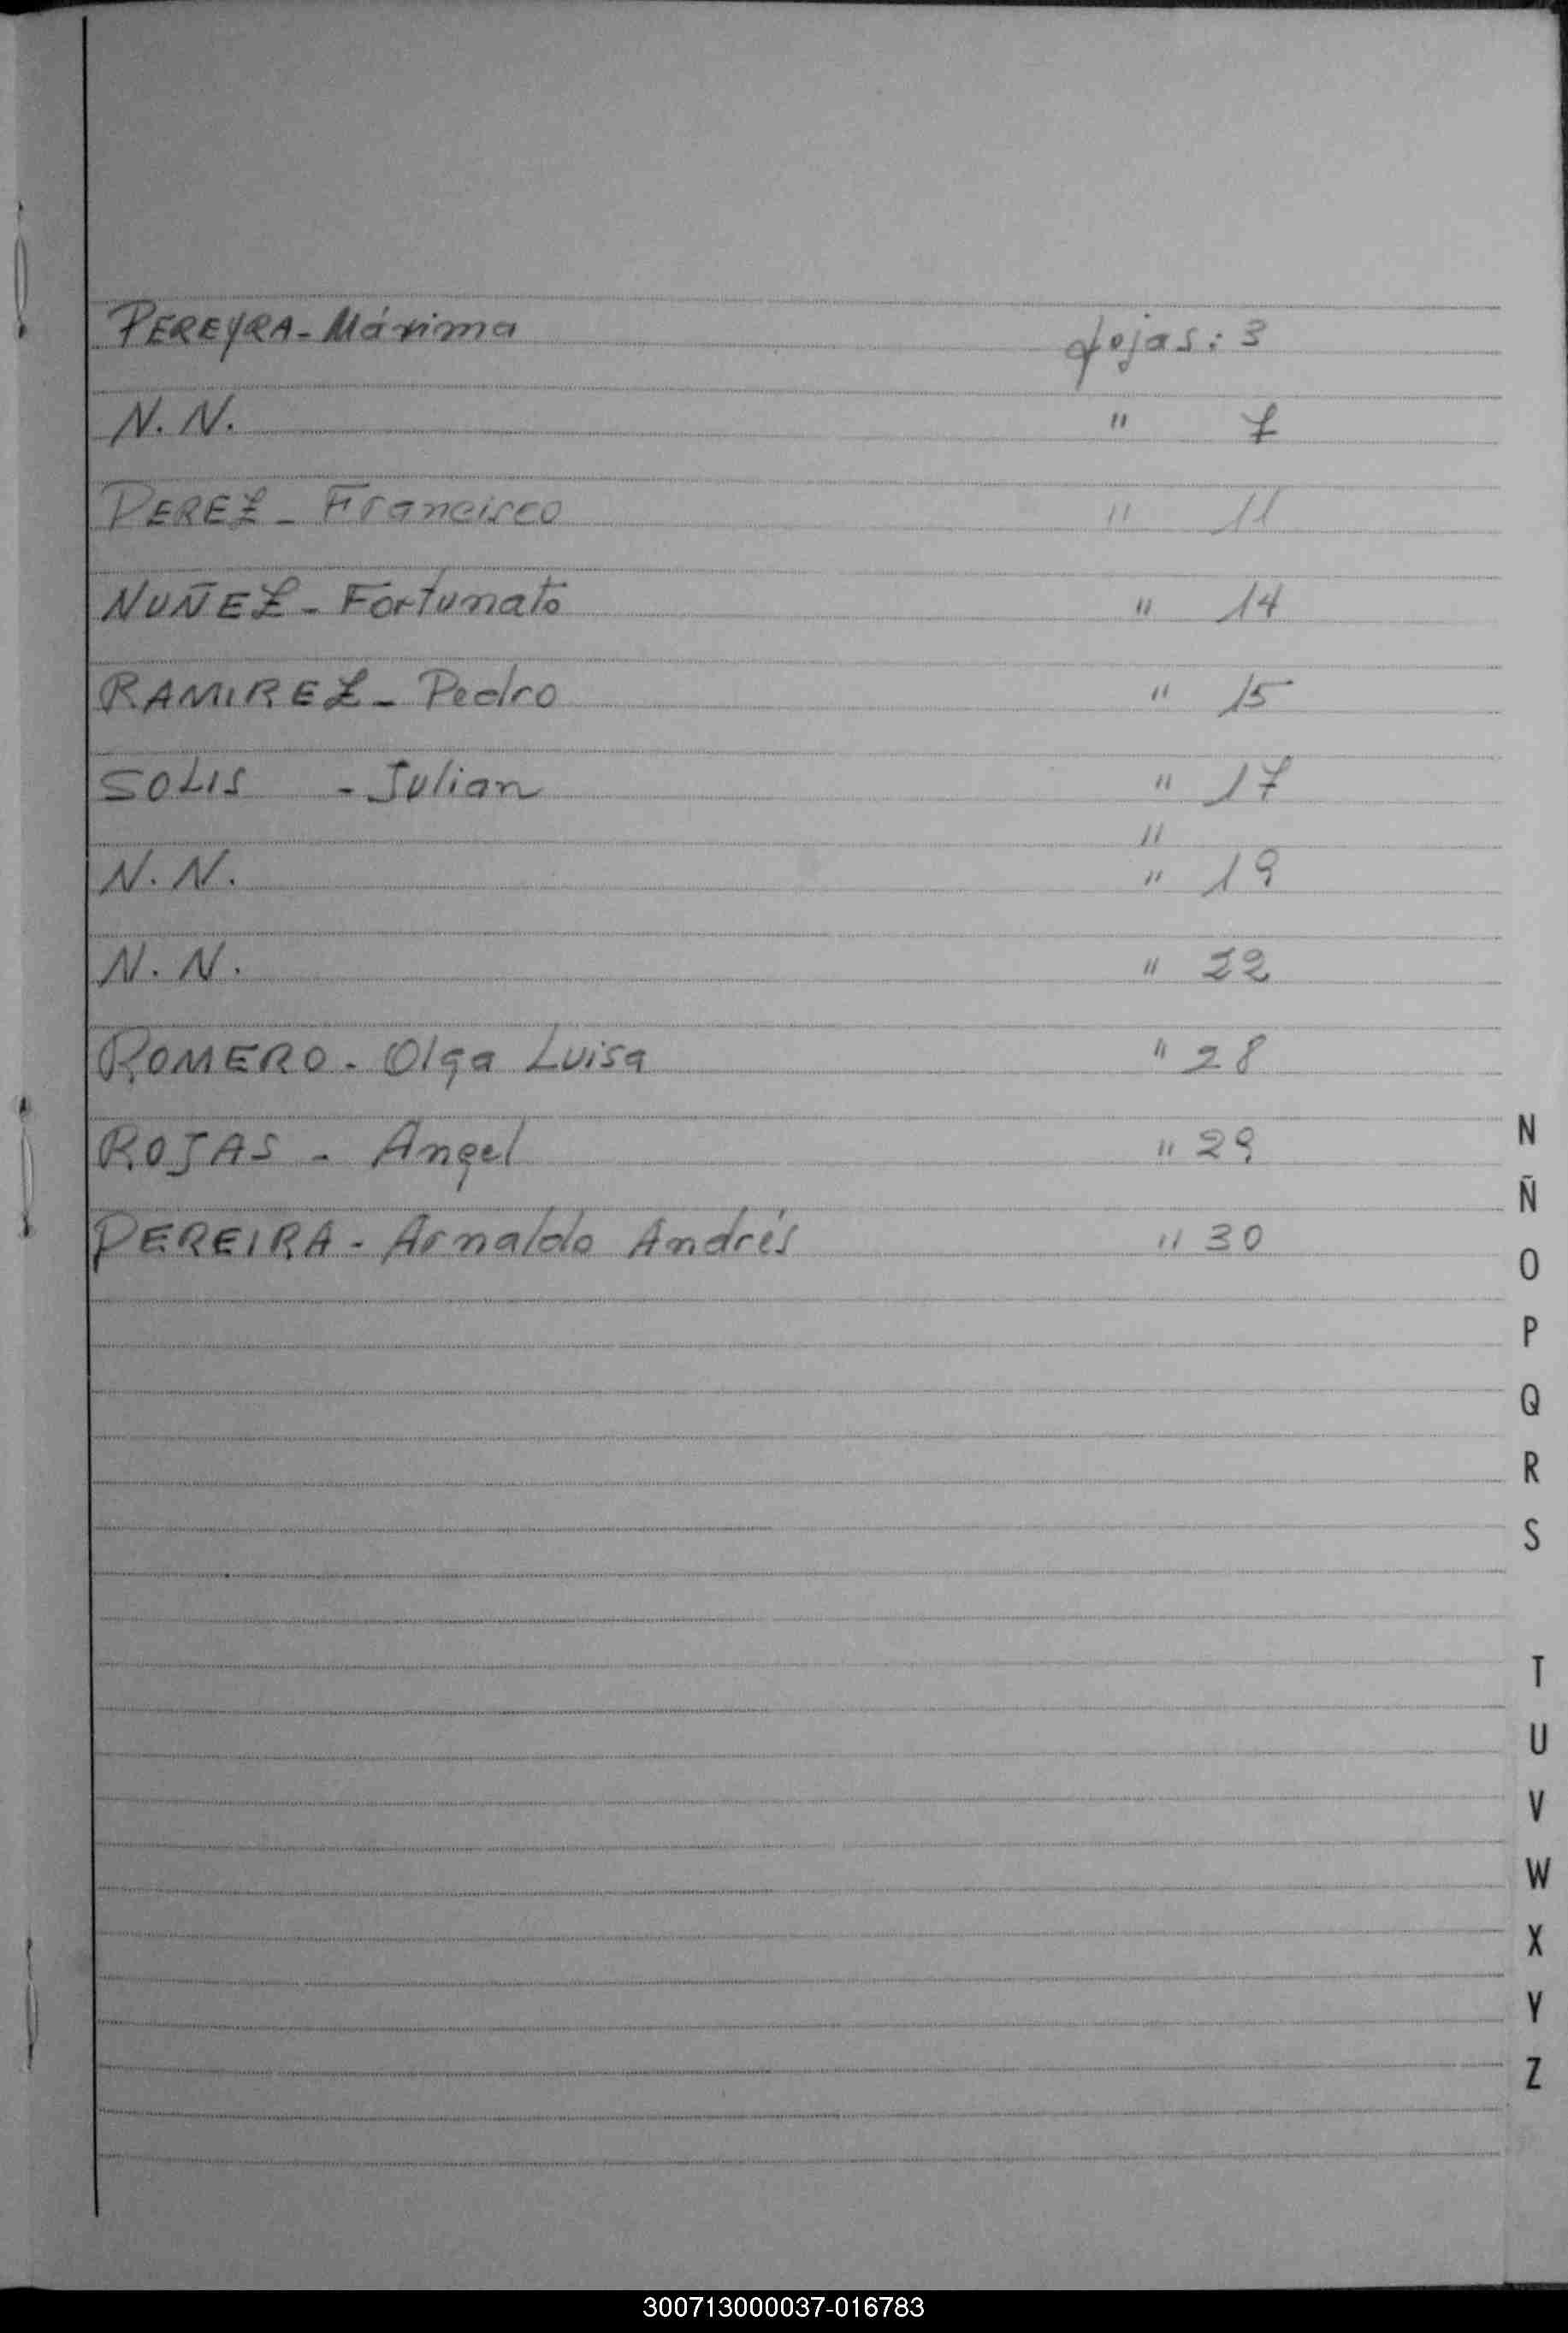 PEREYRA - Máxima fojas: 3
N. N. " 7
PEREZ - Francisco " 11
NUÑEZ - Fortunato " 14
RAMIREZ - Pedro " 15
SOLIS - Julian " 17
"
N. N. " 19
N. N. " 22
ROMERO - Olga Luisa " 28
ROJAS - Angel " 29
PEREIRA - Arnaldo Andrés " 30
N
Ñ
O
P
Q
R
S
T
U
V
W
X
Y
Z
300713000037-016783